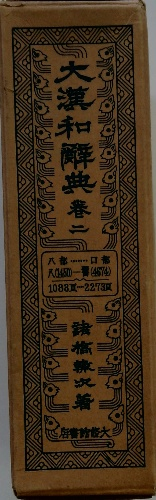 大漢和辭典
卷二
八部……口部
1088頁—2273頁
諸橋轍次著
大修館書店